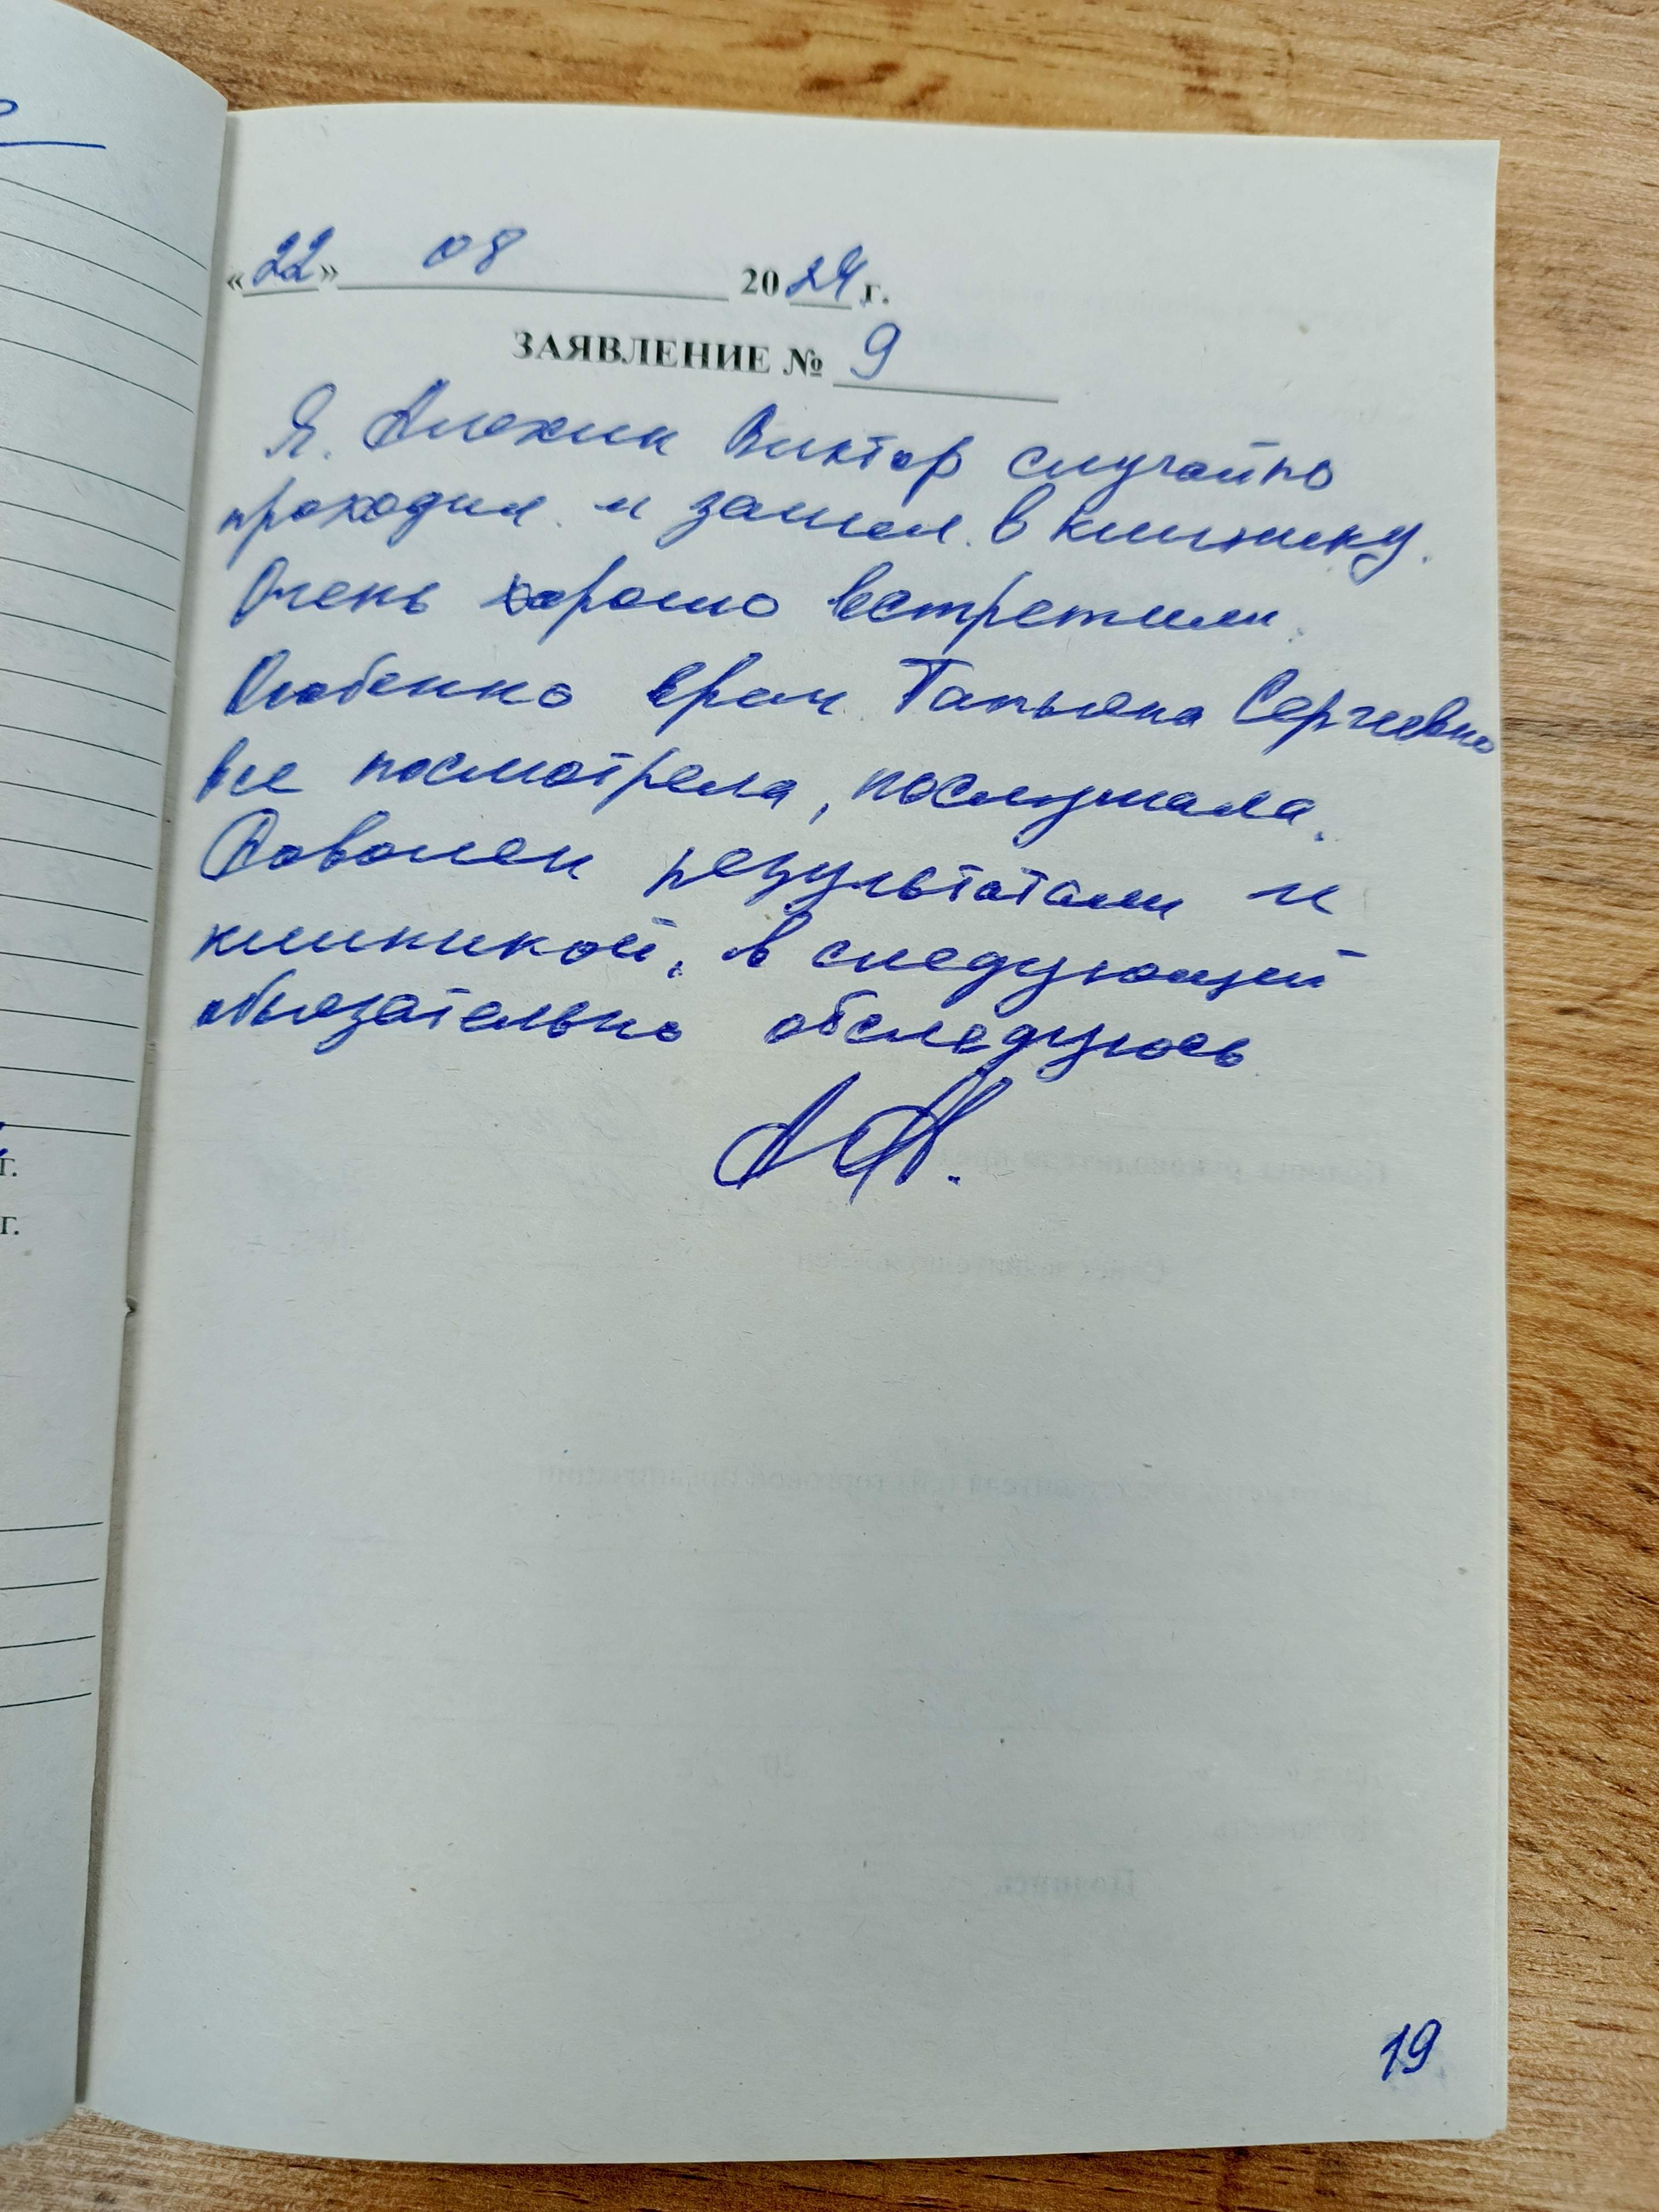 «22» 08 2024 г.
ЗАЯВЛЕНИЕ № 9
Я. Алехин Виктор случайно
проходил и зашел в клинику.
Очень хорошо встретили.
Особенно врач Татьяна Сергеевна
все посмотрела, послушала.
Доволен результатами и
клиникой, в следующей
обязательно обследуюсь
19
г.
г.